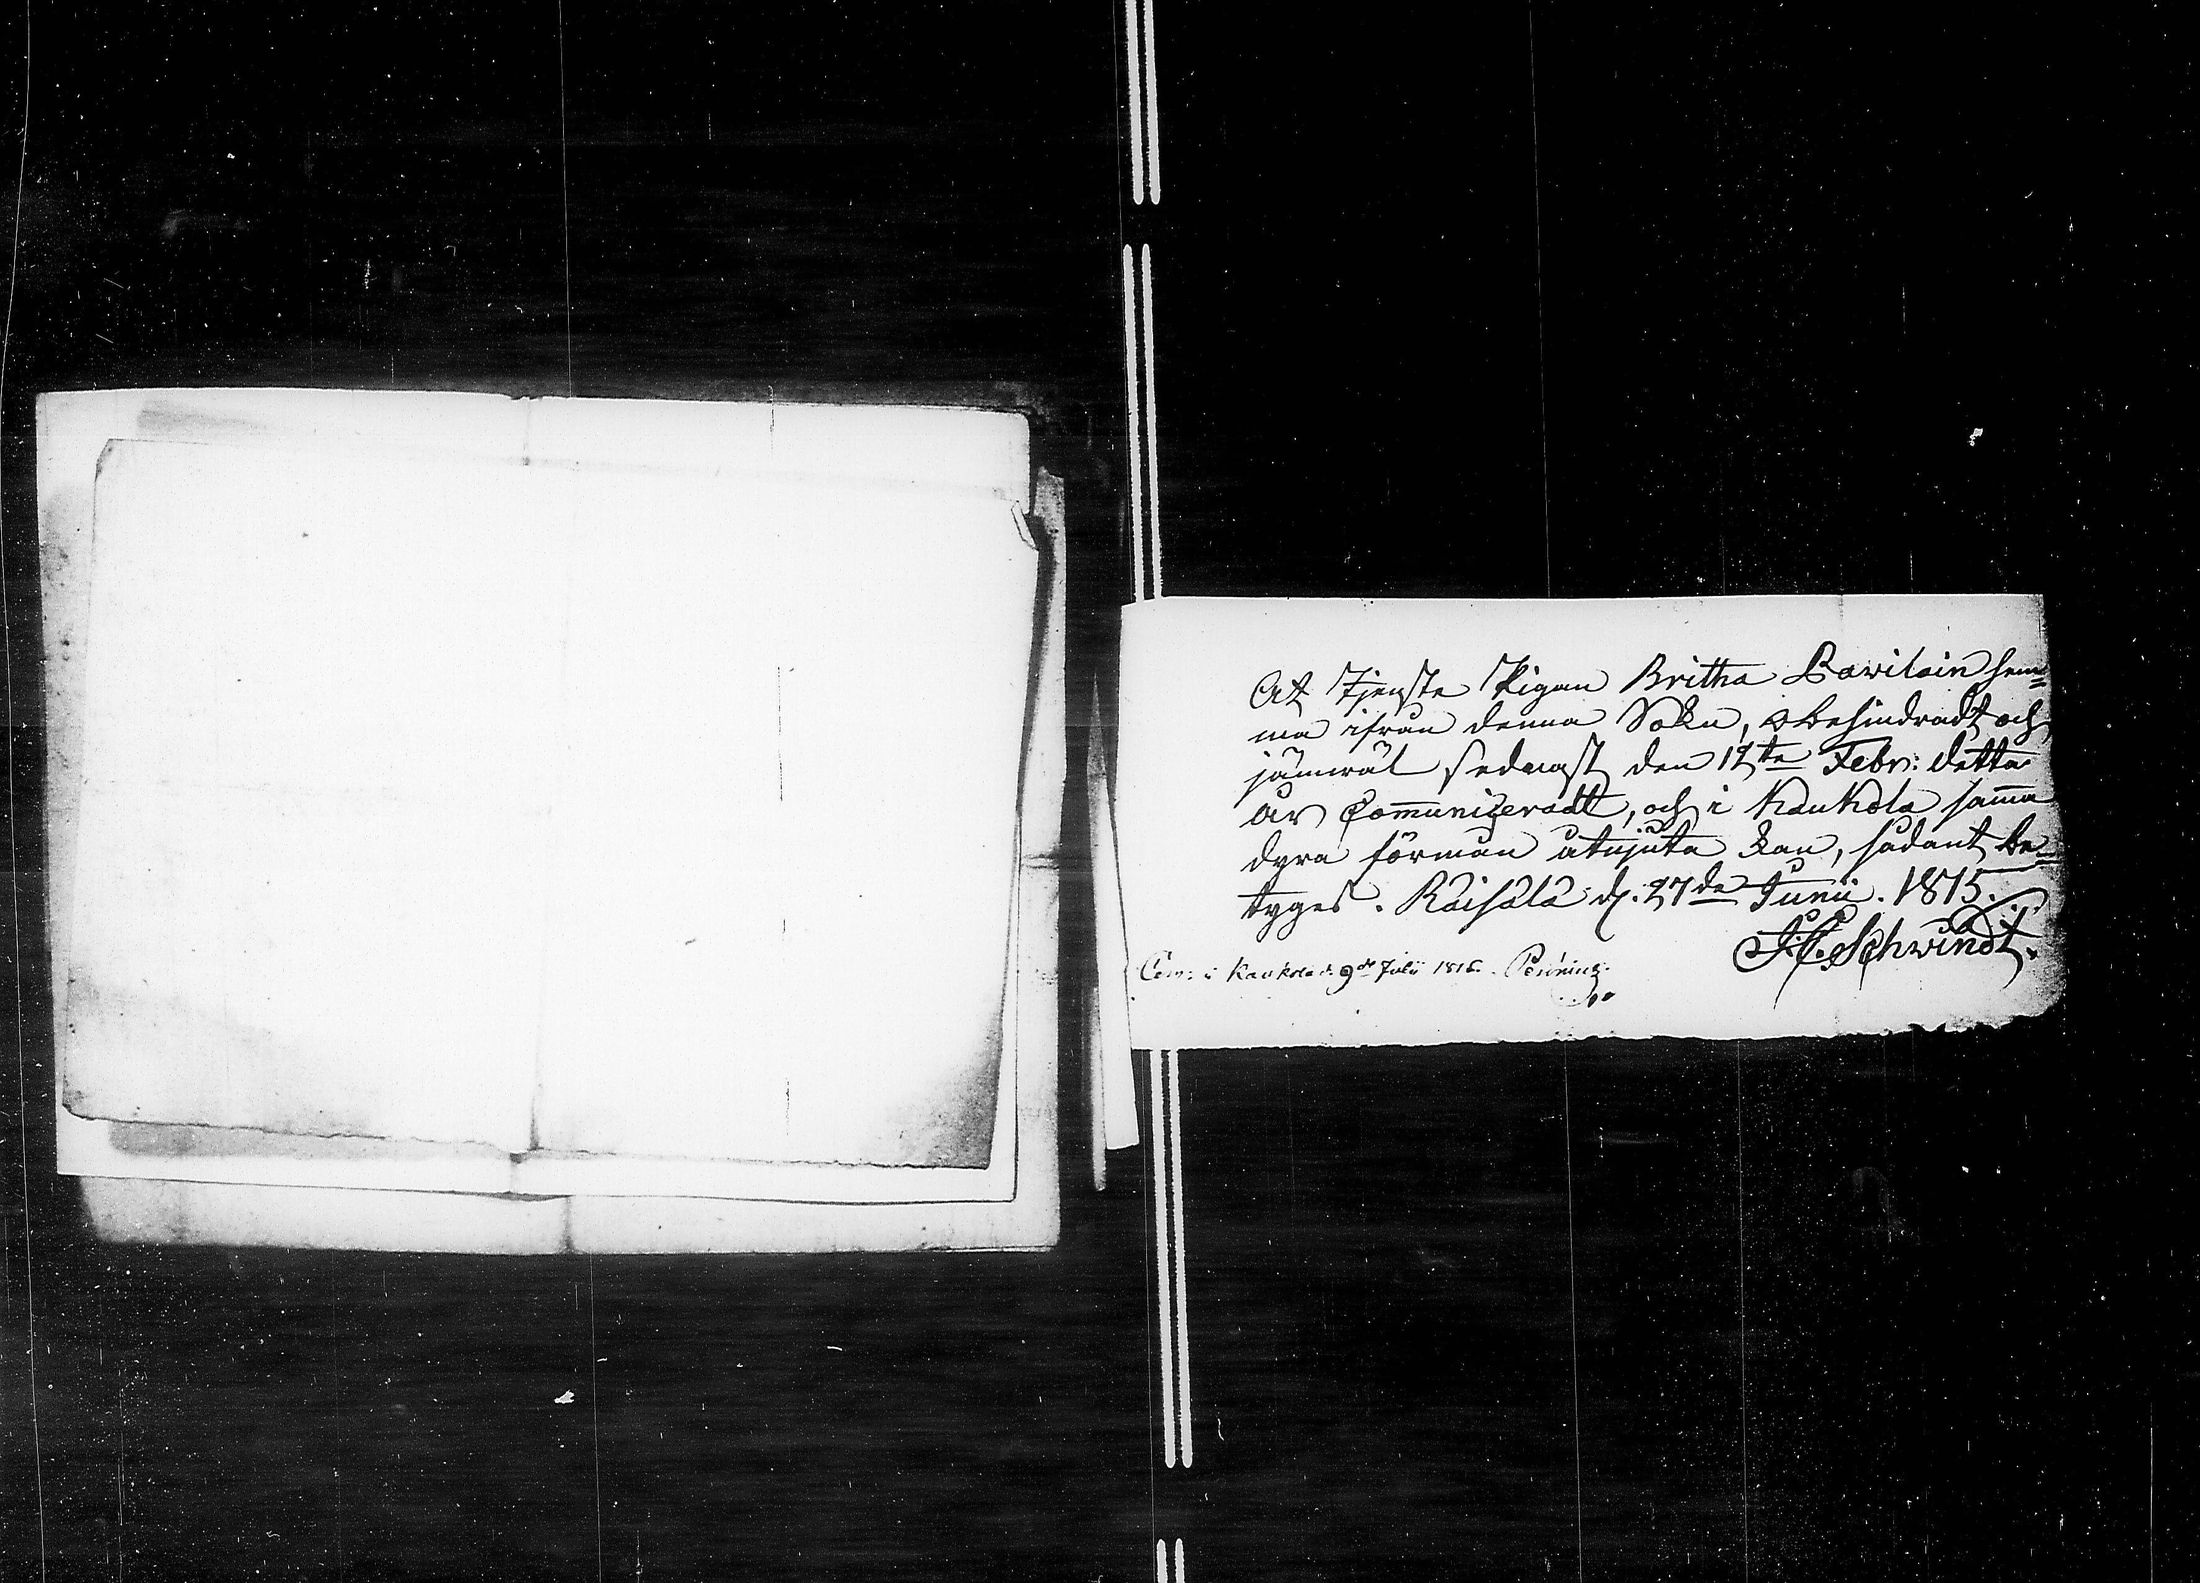 At Tjenste Pigan Britha Pawilain hem=
ma ifrån denna Sokn, obehindradt och
jämwäl sednast den 12te Febr: detta
år Com̄uniceradt, och i Kaukola sam̄a
dyra förmån åtnjuta kan, sådant be=
tyges. Räisälä d. 27de Junii. 1815.
J. C. Schwindt.
Com: i Kaukola d. 9de Julii 1815.